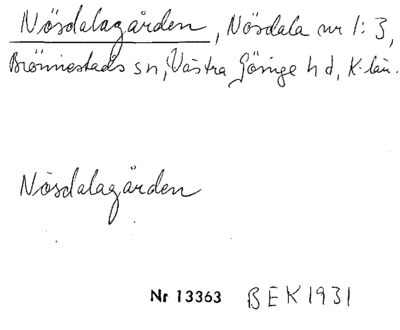 Nösdalagården, Nösdala nr 1:3,
Brönnestads sn, Västra Göinge hd, K-län.
Nösdalagården
Nr 13363 BEK1931